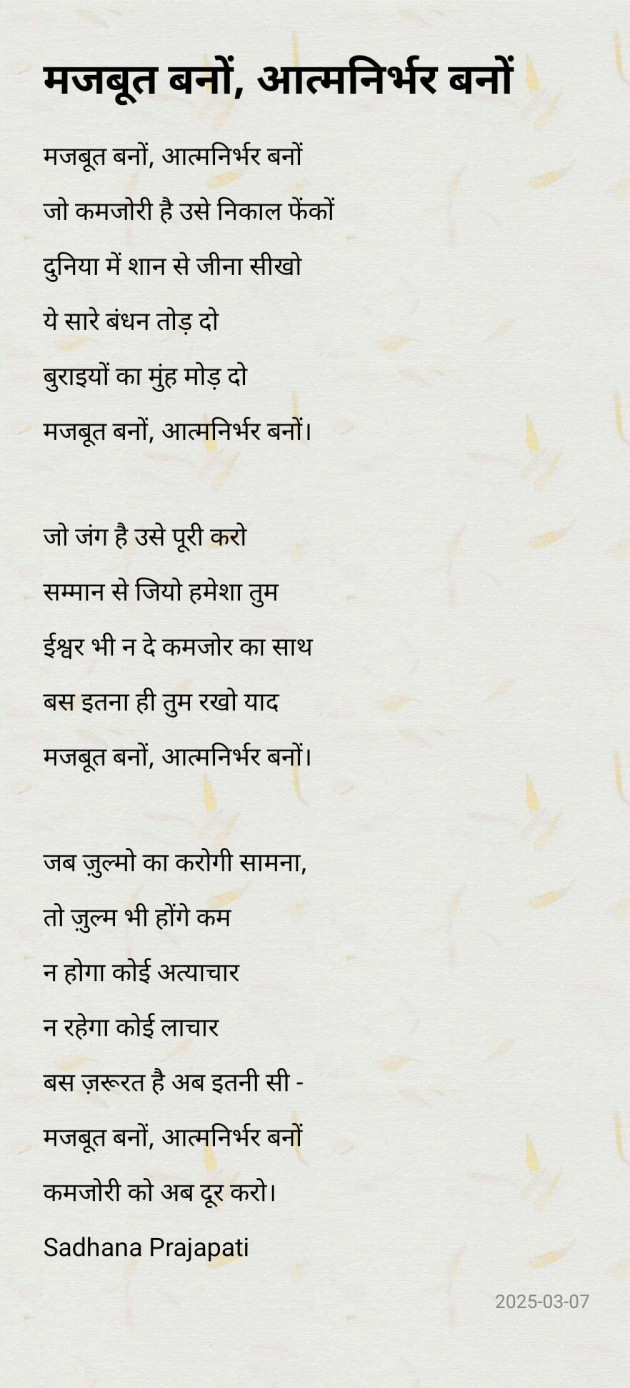 मजबूत बनों, आत्मनिर्भर बनों
मजबूत बनों, आत्मनिर्भर बनों
जो कमजोरी है उसे निकाल फेंकों
दुनिया में शान से जीना सीखो
ये सारे बंधन तोड़ दो
बुराइयों का मुंह मोड़ दो
मजबूत बनों, आत्मनिर्भर बनों।
जो जंग है उसे पूरी करो
सम्मान से जियो हमेशा तुम
ईश्वर भी न दे कमजोर का साथ
बस इतना ही तुम रखो याद
मजबूत बनों, आत्मनिर्भर बनों।
जब ज़ुल्मो का करोगी सामना,
तो ज़ुल्म भी होंगे कम
न होगा कोई अत्याचार
न रहेगा कोई लाचार
बस ज़रूरत है अब इतनी सी -
मजबूत बनों, आत्मनिर्भर बनों
कमजोरी को अब दूर करो।
Sadhana Prajapati
2025-03-07